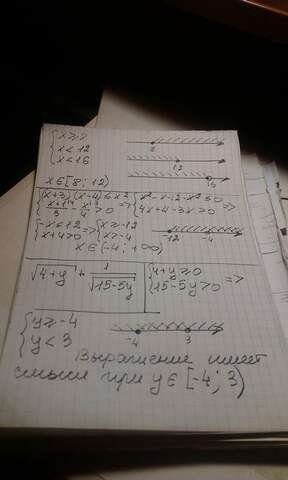 {x≥8
{x<12
{x<16
8
12
16
x∈[8; 12)
{(x+3)(x-4)≤x² {x²-x-12-x²≤0
=> =>
3 - 4 >0 {4x+4-3x>0
{-x≤12 => {x≥-12
{x+4>0 {x>-4
-12 -4
x∈(-4; +∞)
√4+y + 1/√15-5y {4+y≥0 =>
{15-5y>0
{y≥-4
{y<3
-4 3
Выражение имеет
смысл при y∈[-4; 3)